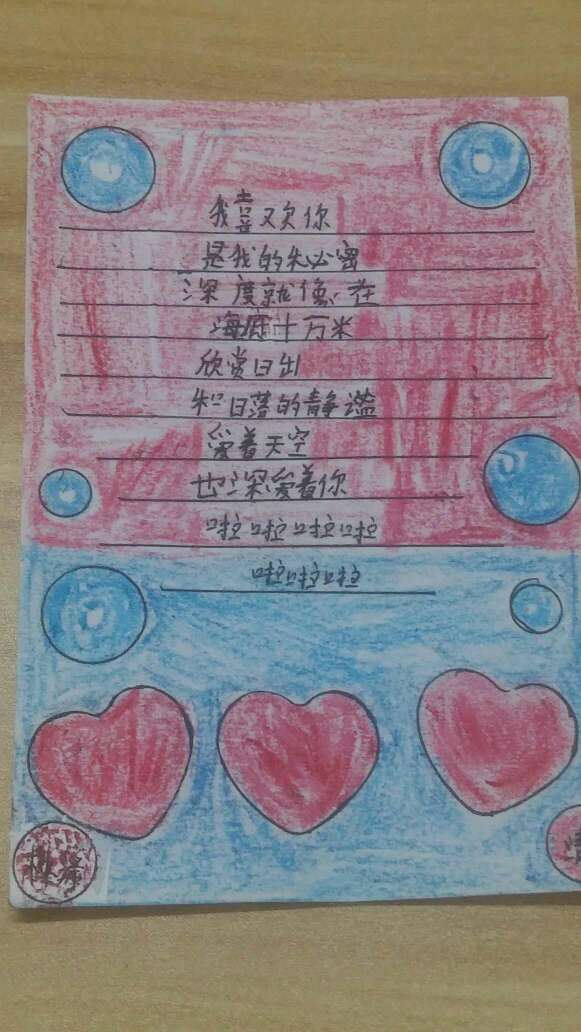 我喜欢你
是我的失必密
深度就像在
海底十万米
欣赏日出
和日落的静谧
爱着天空
也深爱着你
啦啦啦啦
啦啦啦